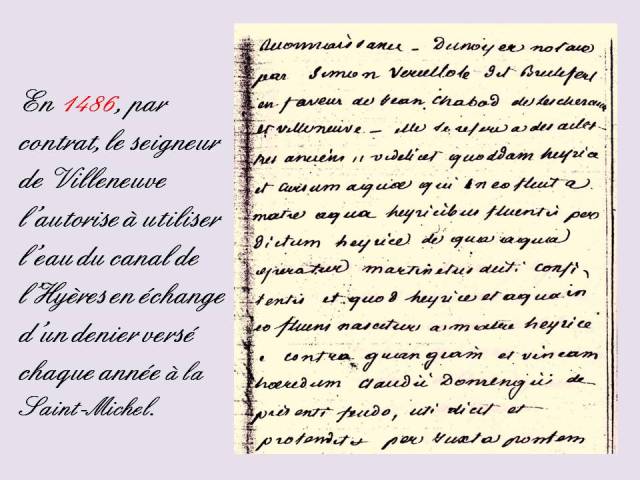 En 1486, par
contrat, le seigneur
de Villeneuve
l'autorise à utiliser
l'eau du canal de
l'Hyères en échange
d'un denier versé
chaque année à la
Saint-Michel.
Reconnaissance - Dunoyer notaire
par Simon dit
en faveur de Jean Chabod de lescheraine
et villeneuve - elle se refere a des actes
tres anciens ,, videlicet quoddam heyrice
et cursum aquae qui in eo fluit a
matre aqua heyricibus fluentis per
dictum heyrice de qua aqua
operatur martinetus dicti confi,
tentis et quod heyrice et aqua in
eo fluens nascitur a matre heyrice
e contra quanquam et vineam
haeredum claudii Domengii de
presenti feudo, uti dicit et
protendit per Juxta pontem